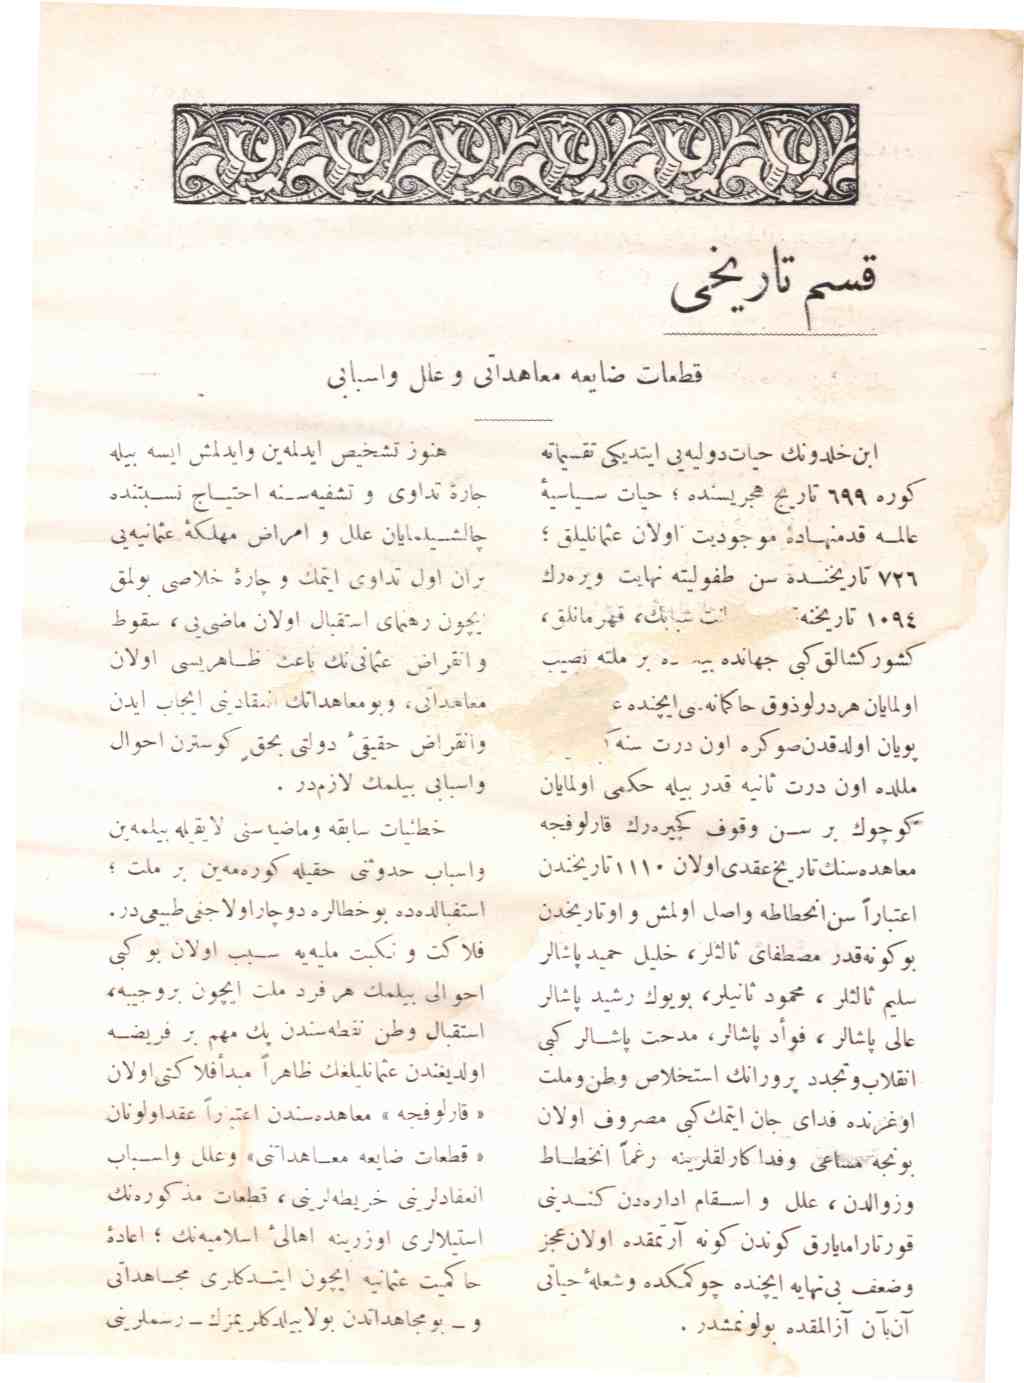 قسم تاریخی
قطعات ضایعه معاهداتی و علل واسبابی
ابن‌خلدونك حیات‌دولیه‌یی ایتدیکی تقسیماته
کوره ٦٩٩ تاریخ هجریسنده ؛ حیات سیاسیهٔ
عالمه قدمنهادهٔ موجودیت اولان عثمانلیلق ؛
٧٢٦ تاریخنده سن طفولیته نهایت ویره‌رك
١٠٩٤ شبابك، قهرمانلق،
کشورکشالق کبی جهانده بر ملته نصیب
اولمایان هردرلوذوق حاکمانه‌یی ایچنده
پویان اولدقدن‌صوکره اون درت سنه
مللده اون درت ثانیه قدر بیله حکمی اولمایان
کوچوك بر سن وقوف کچیره‌رك قارلوفجه
معاهده‌سنك تاریخ‌عقدی اولان ١١١٠ تاریخندن
اعتباراً سن‌انحطاطه واصل اولمش و اوتاریخدن
بوکونه‌قدر مصطفای ثالثلر، خلیل حمید پاشالر
سلیم ثالثلر ، محمود ثانیلر، بویوك رشید پاشالر
عالی پاشالر ، فوأد پاشالر، مدحت پاشالر کبی
انقلاب‌وتجدد پرورانك استخلاص وطن‌وملت
اوغرنده فدای جان ایتمك‌کبی مصروف اولان
بونجه مساعی وفداکارلقلرینه رغماً انحطاط
وزوالدن، علل و اسقام اداره‌دن کندینی
قورتارامه‌یارق کوندن کونه آرتمقده اولان‌عجز
وضعف بی‌نهایه ایچنده چوکمکده وشعلهٔ حیاتی
آن‌بآن آزالمقده بولونمشدر .
هنوز تشخیص ایدلمه‌ین وایدلمش ایسه بیله
چارهٔ تداوی و تشفیه‌سنه احتیاج نسبتنده
چالشیلمایان علل و امراض مهلکهٔ عثمانیه‌یی
بران اول تداوی ایتمك و چارهٔ خلاصی بولمق
ایچون رهنمای استقبال اولان ماضی‌یی ، سقوط
و انقراض عثمانی‌نك باعث ظاهریسی اولان
معاهداتی، وبومعاهداتك انعقادینی ایجاب ایدن
وانقراض حقیقیٔ دولتی بحق کوسترن احوال
واسبابی بیلمك لازمدر .
خطئیات سابقه وماضیه‌سنی لایقیله بیلمه‌ین
واسباب حدوثنی حقیله کوره‌مه‌ین بر ملت ؛
استقبالده‌ده بوخطالره دوچاراولاجغی طبیعی‌در.
فلاکت و نکبت ملیه‌یه سبب اولان بو کبی
احوالی بیلمك هر فرد ملت ایچون بروجیبه،
استقبال وطن نقطه‌سندن پك مهم بر فریضه
اولدیغندن عثمانلیلغك ظاهراً مبدأفلاکتی‌اولان
« قارلوفجه » معاهده‌سندن اعتباراً عقداولونان
« قطعات ضایعه معاهداتنی» وعلل واسباب
انعقادلرینی خریطه‌لرینی ، قطعات مذکوره‌نك
استیلالری اوزرینه اهالیٔ اسلامیه‌نك ؛ اعادهٔ
حاکمیت عثمانیه ایچون ایتدکلری مجاهداتی
و ـ بومجاهداتدن بولابیلدکلریمزك ـ رسملرینی